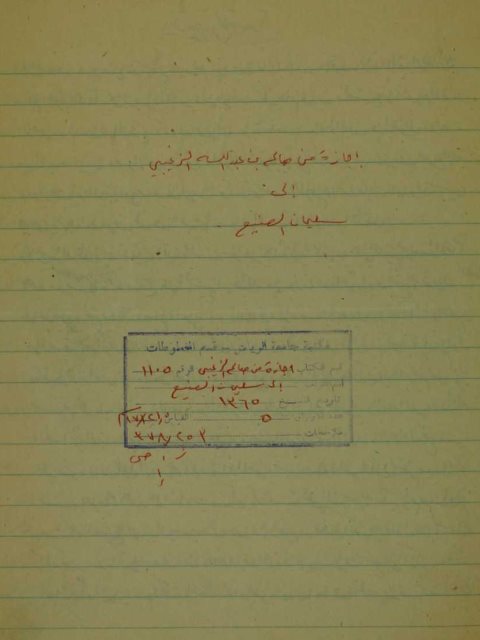 إجازة من صالح بن عبد الله الزغيبي
إلى
سليمان الصنيع
مكتبة جامعة الرياض - قسم المخطوطات
اسم الكتاب اجازة من صالح الزغيبي الرقم ١١٠٥
إلى سليمان الصنيع
تاريخ النسخ ١٣٦٥
عدد الأوراق ٥ القياس
ملاحظات